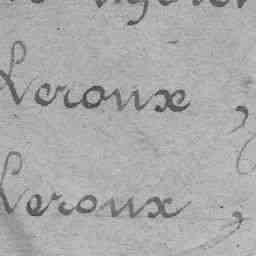 Leroux,
Leroux,